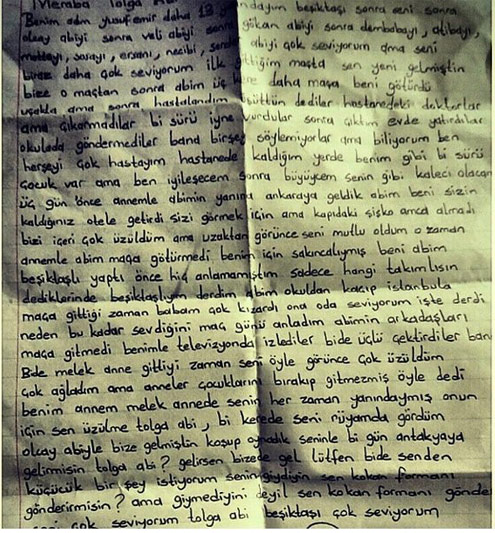 Meraba Tolga Abi
Benim adım yusuf emir daha 13 dayım beşiktaşı sonra seni sonra
olcay abiyi sonra veli abiyi sonra gökan abiyi sonra dembabayı, atibayı,
mottayı, sosayı, ersanı, necibi, abiyi çok seviyorum ama seni
biraz daha çok seviyorum ilk gittiğim maçta sen yeni gelmiştin
bize o maçtan sonra abim üç kere daha maça beni götürdü
uçakla ama sonra hastalandım üşüttün dediler hastanedeki doktorlar
ama çıkarmadılar bi sürü iyne vurdular sonra çıktım evde yatırdılar
okulada göndermediler band birşey söylemiyorlar ama biliyorum ben
herşeyi çok hastayım hastanede kaldığım yerde benim gibi bi sürü
çocuk var ama ben iyileşecem sonra büyüycem senin gibi kaleci olacam
üç gün önce annemle abimin yanına ankaraya geldik abim beni sizin
kaldığınız otele getirdi sizi görmek için ama kapıdaki şişko amca almadı
bizi içeri çok üzüldüm ama uzaktan görünce seni mutlu oldum o zaman
annemle abim maça götürmedi benim için sakıncalıymış beni abim
beşiktaşlı yaptı önce hiç anlamamıştım sadece hangi takımlısın
dediklerinde beşiktaşlıyım derdim abim okuldan kaçıp istanbula
maça gittiği zaman babam çok kızardı ona oda seviyorum işte derdi
neden bu kadar sevdiğini maç günü anladım abimin arkadaşları
maça gitmedi benimle televizyonda izlediler bide üçlü çektirdiler bana
Bide melek anne gittiyi zaman seni öyle görünce çok üzüldüm
çok ağladım ama anneler çocuklarını bırakıp gitmezmiş öyle dedi
benim annem melek annede senin her zaman yanındaymış onun
için sen üzülme tolga abi, bi kerede seni rüyamda gördüm
olcay abiyle bize gelmiştin koşup oynadık seninle bi gün antakyaya
gelirmisin tolga abi? gelirsen bizede gel lütfen bide senden
küçücük bir şey istiyorum senin giydiyin sen kokan formanı
gönderirmisin? ama giymediyini deyil sen kokan formanı gönder
seni çok seviyorum tolga abi beşiktaşı çok seviyorum